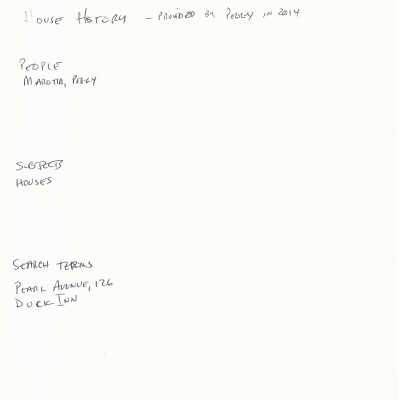 HOUSE HISTORY - PROVIDED BY PEGGY IN 2014
PEOPLE
MAROTTA, PEGGY
SUBJECTS
HOUSES
SEARCH TERMS
PEARL AVENUE, 126
DUCK INN